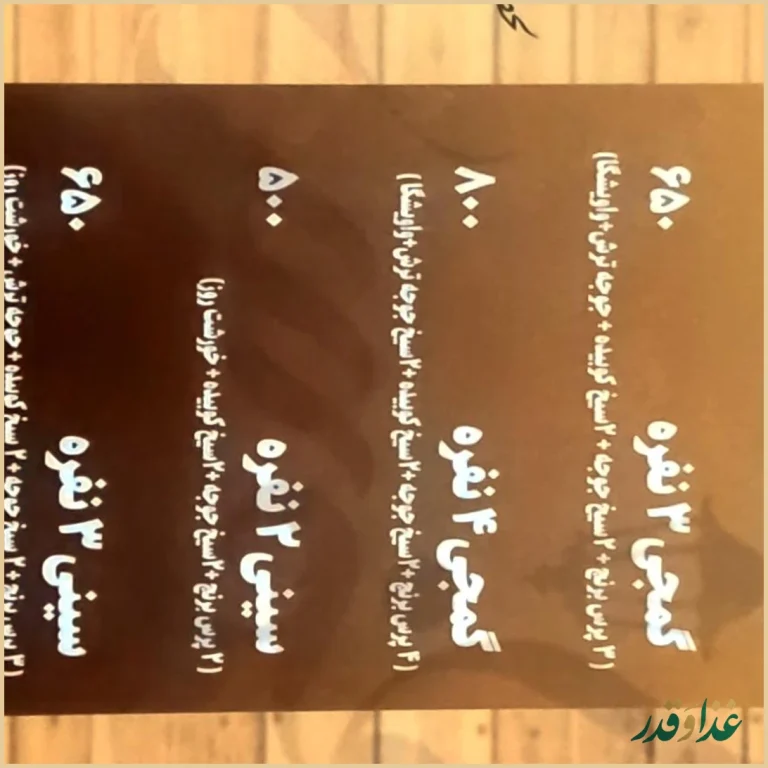 گمجی ۳ نفره ۶۵۰
(۳ پرس برنج + ۲سیخ جوجه + ۲سیخ کوبیده + جوجه ترش+واویشکا)
گمجی ۴ نفره ۸۰۰
(۴ پرس برنج +۲سیخ جوجه +۲سیخ کوبیده +۲سیخ جوجه ترش+واویشکا)
سینی ۲ نفره ۵۰۰
(۲ پرس برنج +۲سیخ جوجه +۲سیخ کوبیده + خورشت روز)
سینی ۳ نفره ۶۵۰
(۳ پرس برنج + ۲ سیخ جوجه + ۲ سیخ کوبیده + جوجه ترش + خورشت روز)
غذا و قدر